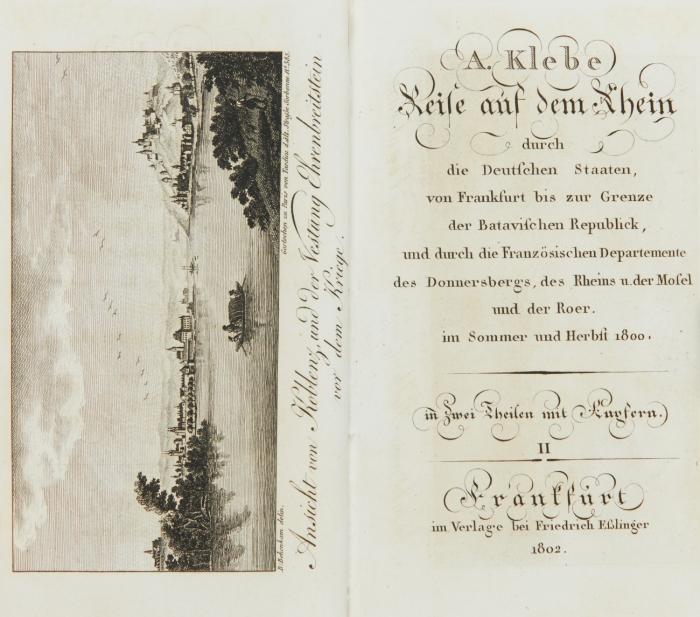 B. Beckenkam delin.
Gestochen zu Paris von
Ansicht von Koblenz und der Vestung Ehrenbreitstein
vor dem Kriege.
A. Klebe
Reiſe auf dem Rhein
durch
die Deutſchen Staaten,
von Frankfurt bis zur Grenze
der Bataviſchen Republick,
und durch die Französischen Departemente
des Donnersbergs, des Rheins u. der Moſel
und der Roer.
im Sommer und Herbſt 1800.
in Zwei Theilen mit Kupfern.
II
Frankfurt
im Verlage bei Friedrich Eßlinger
1802.